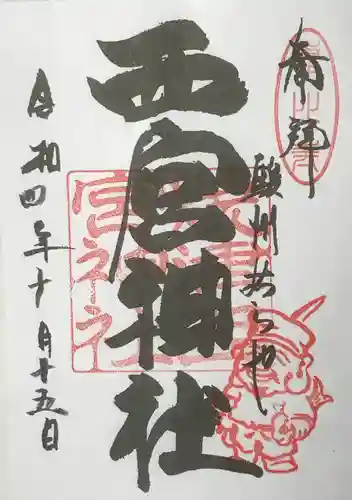 奉拝
駿州あらや
西宮神社
令和四年十月十五日